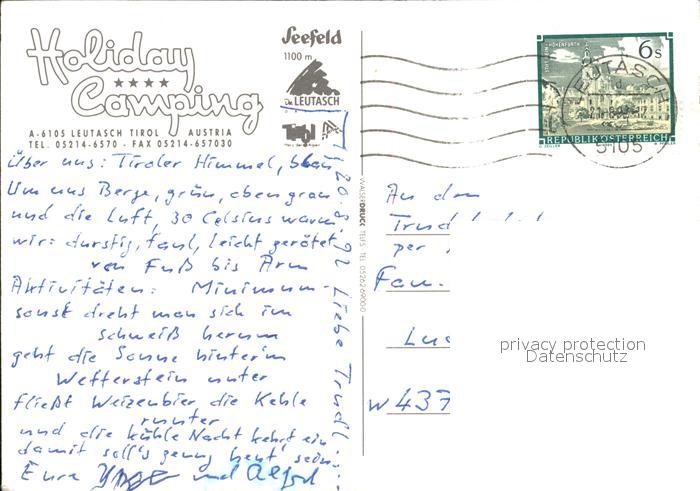 Holiday
Camping
A-6105 LEUTASCH TIROL AUSTRIA
TEL. 05214-6570 - FAX 05214-657030
Seefeld
1100 m
LEUTASCH
Tirol
6s
REPUBLIK ÖSTERREICH
LEUTASCH
6105
20.8.92 Liebe Trudl
Über uns: Tiroler Himmel, blau
Um uns Berge, grün, oben grau
und die Luft, 30 Celsius warm
wir: durstig, faul, leicht gerötet
von Fuß bis Arm
Aktivitäten: Minimum-
sonst dreht man sich im
schweiß herum
geht die Sonne hinterm
Wetterstein unter
fließt Weizenbier die Kehle
runter
und die kühle Nacht kehrt ein
damit soll's genug heut' sein...
Eure und Alfred
WALSERDRUCK TELFS TEL. 05262-6900-0
An den
Trud
per
Fam.
W 437
privacy protection
Datenschutz